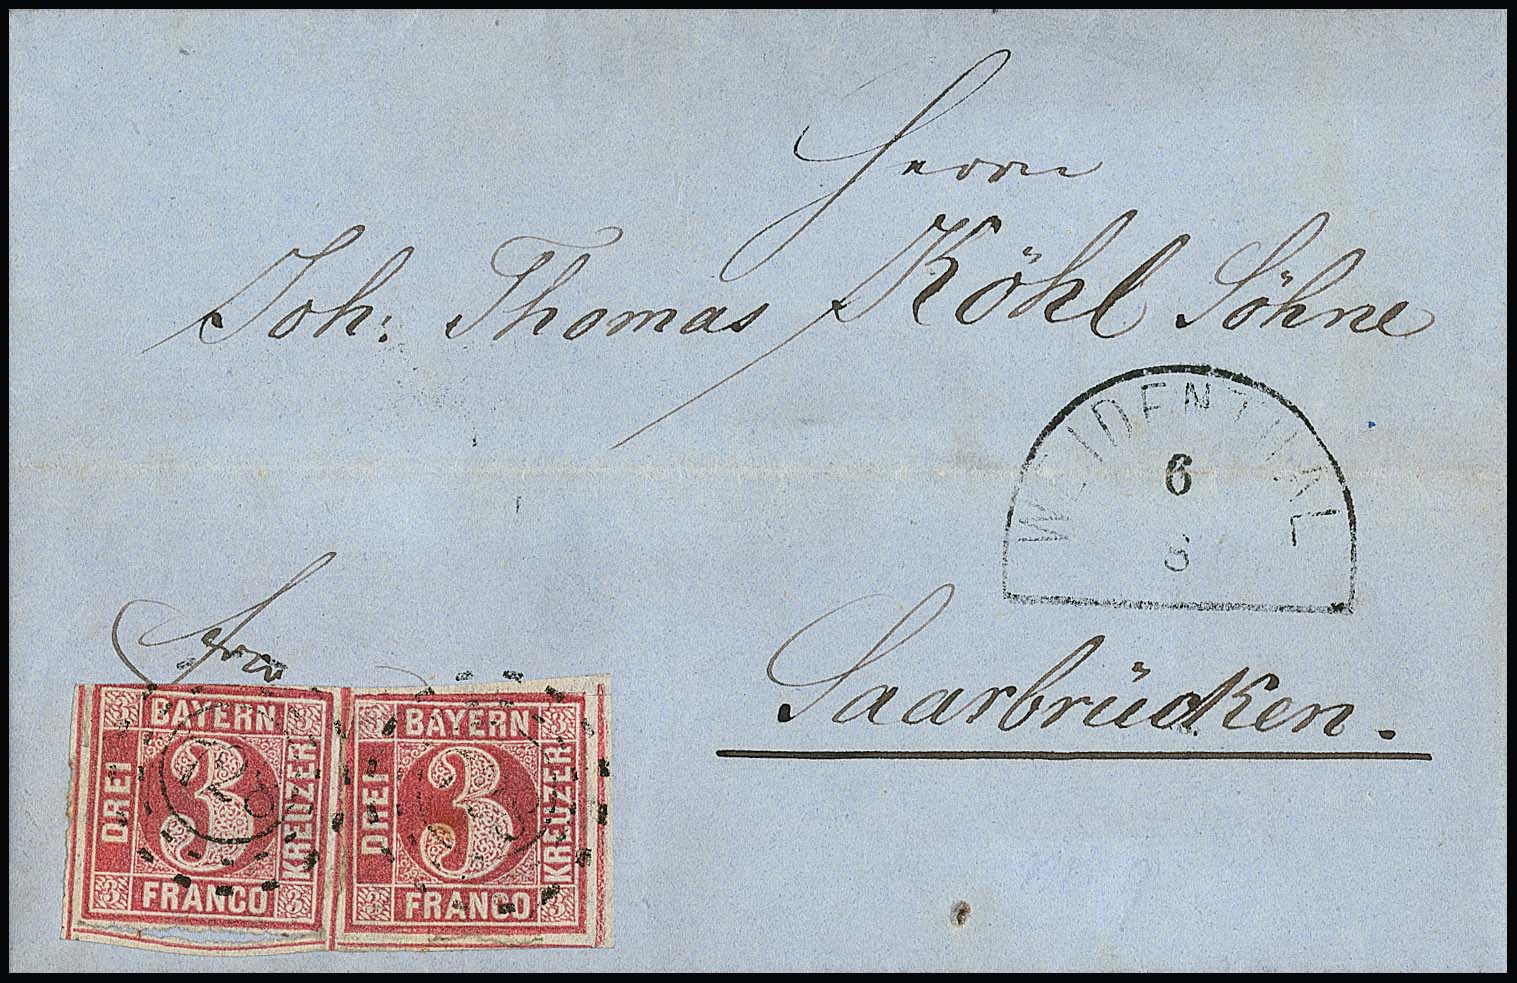 Herrn
Joh: Thomas Köhl Söhne
WEIDENTHAL
6
8
Saarbrücken.
BAYERN
DREI
3
KREUZER
FRANCO
3
3
3
BAYERN
DREI
3
KREUZER
FRANCO
3
3